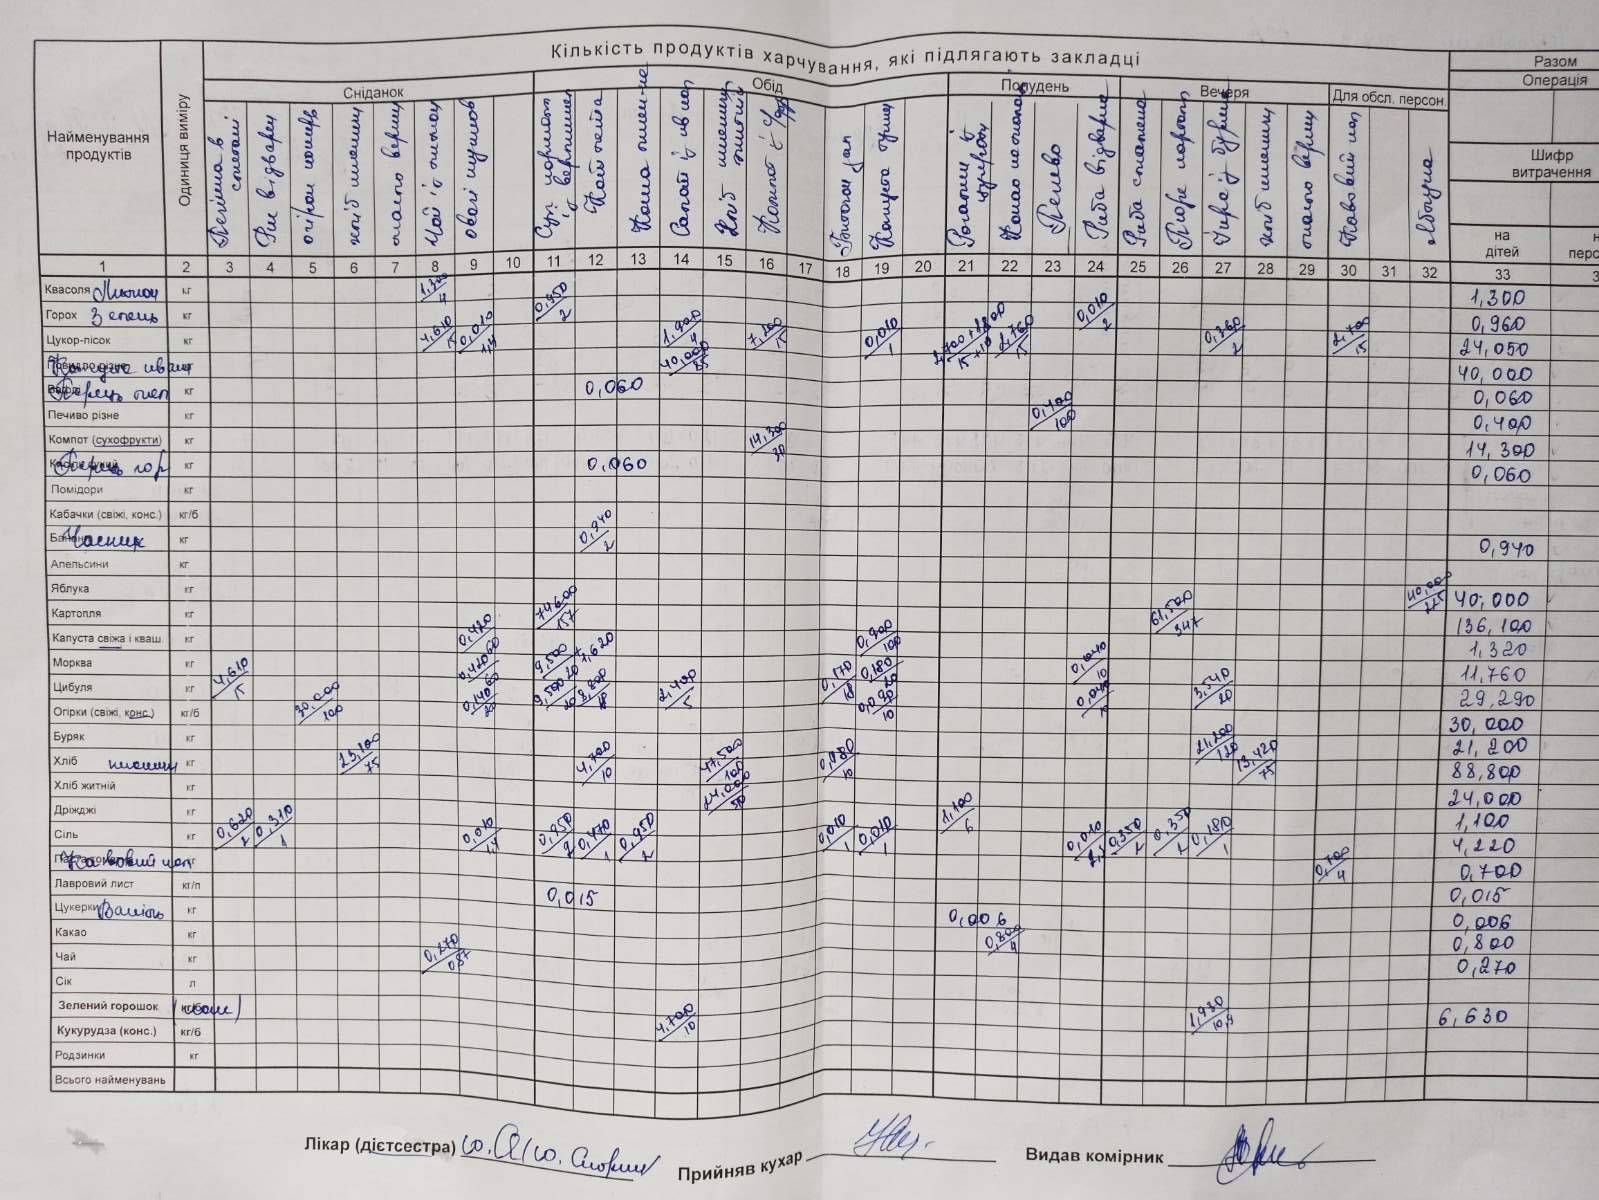 Кількість продуктів харчування, які підлягають закладці
Разом
Операція
Найменування продуктів
Одиниця виміру
Сніданок
Обід
Полудень
Вечеря
Для обсл. персон.
Шифр витрачення
на дітей
Печінка в сметані
Рис відварен
огірок консерв
хліб пшенич
масло вершк
Чай з лимоном
Овочі тушков
Хліб пшенич
Компот із с/фр
Капуста туш
Какао на молоці
Печиво
Риба відварна
Риба смажена
Пюре картоп
хліб пшенич
масло вершк
Кавовий нап
яблука
1 2 3 4 5 6 7 8 9 10 11 12 13 14 15 16 17 18 19 20 21 22 23 24 25 26 27 28 29 30 31 32 33
Квасоля Лимон кг 1,300/4 0,950/2 0,010/2 1,300
Горох Зелень кг 0,960
Цукор-пісок кг 4,610/15 0,010/1,4 1,900/4 7,200/15 0,010/1 2,700+1,800/15+10 2,760/15 0,360/2 2,700/15 24,050
Капуста кваш кг 40,000/85 40,000
Перець мел кг 0,060 0,060
Печиво різне кг 0,400/100 0,400
Компот (сухофрукти) кг 14,300/30 14,300
Перець гор кг 0,060 0,060
Помідори кг
Кабачки (свіжі, конс.) кг/б
Часник кг 0,940/2 0,940
Апельсини кг
Яблука кг 40,000/225 40,000
Картопля кг 74,600/157 61,500/347 136,100
Капуста свіжа і кваш. кг 0,420/60 0,900/100 1,320
Морква кг 0,420/60 9,500/20 +1,620 0,180/20 0,040/10 11,760
Цибуля кг 4,610/15 0,140/20 9,500/20 8,800/18 2,400/5 0,170/18 0,090/10 0,040/10 3,540/20 29,290
Огірки (свіжі, конс.) кг/б 30,000/100 30,000
Буряк кг 21,200/120 21,200
Хліб пшенич кг 23,100/75 4,700/10 47,500/100 0,080/10 13,420/75 88,800
Хліб житній кг 24,000/50 24,000
Дріжджі кг 1,100/6 1,100
Сіль кг 0,620/2 0,310/1 0,010/1,4 0,950/2 0,470/1 0,950/2 0,010/1 0,010/1 0,010 0,350/2 0,350/2 0,180/1 4,220
Кавовий нап кг 0,700/4 0,700
Лавровий лист кг/п 0,015 0,015
Цукерки Ваніль кг 0,006 0,006
Какао кг 0,800/4 0,800
Чай кг 0,270/0,87 0,270
Сік л
Зелений горошок (конс) кг/б 4,700/10 1,930/10,9 6,630
Кукурудза (конс.) кг/б
Родзинки кг
Всього найменувань
Лікар (дієтсестра)
Прийняв кухар
Видав комірник